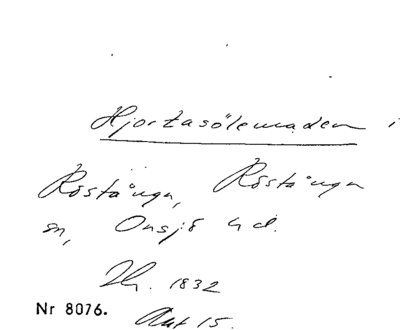 Hjortasölemaden i
Röstånga, Röstånga
sn, Onsjö hd.
1832
Nr 8076.
Akt 15.